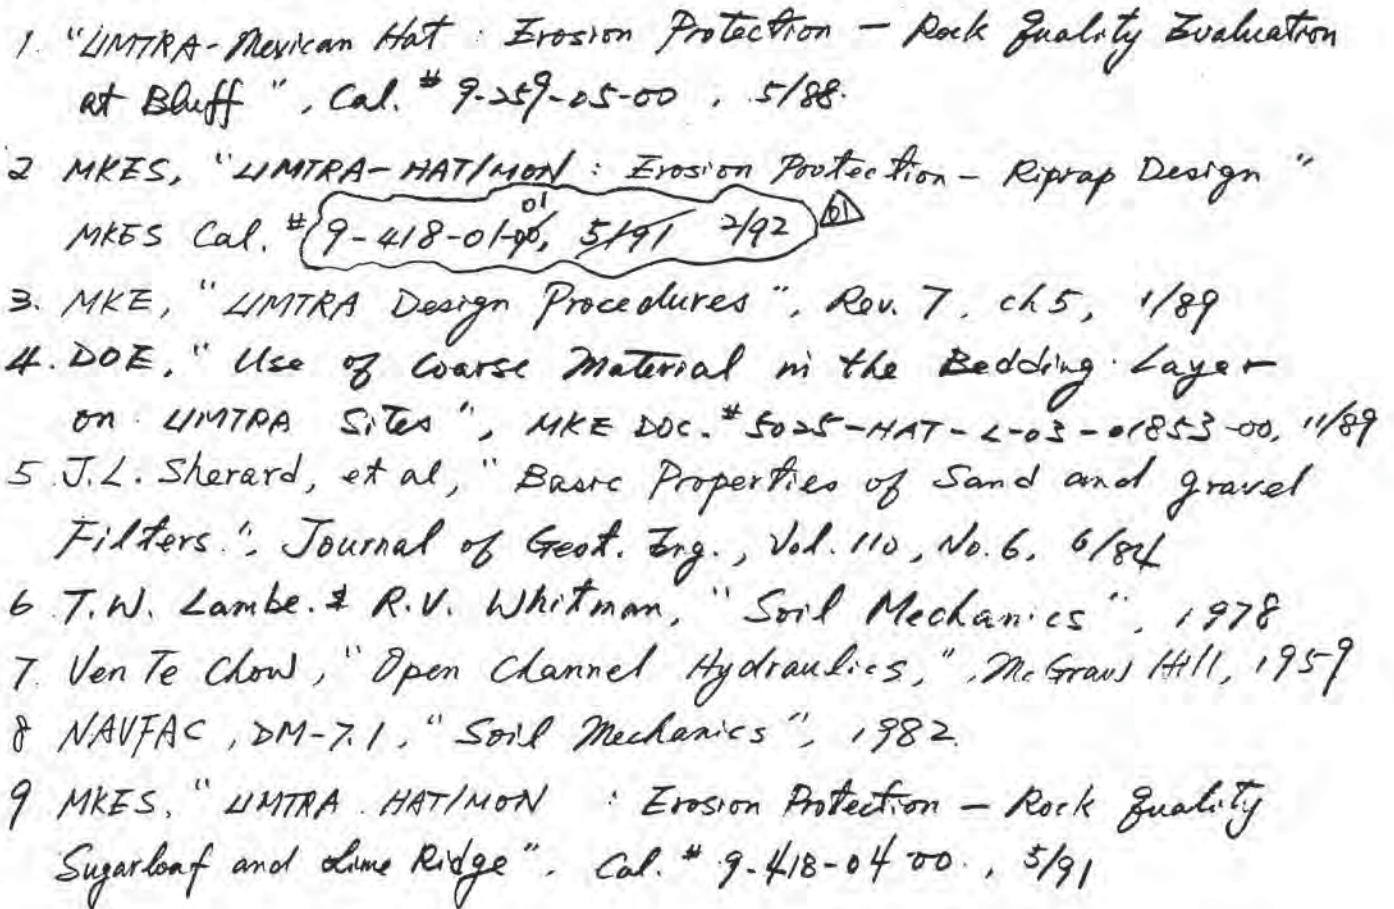 1. "UMTRA-Mexican Hat : Erosion Protection - Rock Quality Evaluation
at Bluff", Cal. # 9-259-05-00, 5/88.
2 MKES, "UMTRA-HAT/MON : Erosion Protection - Riprap Design"
MKES Cal. # 9-418-01-00, 01 5/91 2/92 01
3. MKE, "UMTRA Design Procedures", Rev. 7, ch5, 1/89
4. DOE, "Use of Coarse Material in the Bedding Layer
on UMTRA Sites", MKE DOC. # 5025-HAT-L-03-01853-00, 11/89
5 J.L. Sherard, et al, "Basic Properties of Sand and gravel
Filters.", Journal of Geot. Eng., Vol. 110, No. 6, 6/84
6 T.W. Lambe. & R.V. Whitman, "Soil Mechanics", 1978
7. Ven Te Chow, "Open Channel Hydraulics,", McGraw Hill, 1959
8 NAVFAC, DM-7.1, "Soil Mechanics", 1982.
9 MKES, "UMTRA HAT/MON : Erosion Protection - Rock Quality
Sugarloaf and Lime Ridge". Cal. # 9-418-04-00., 5/91